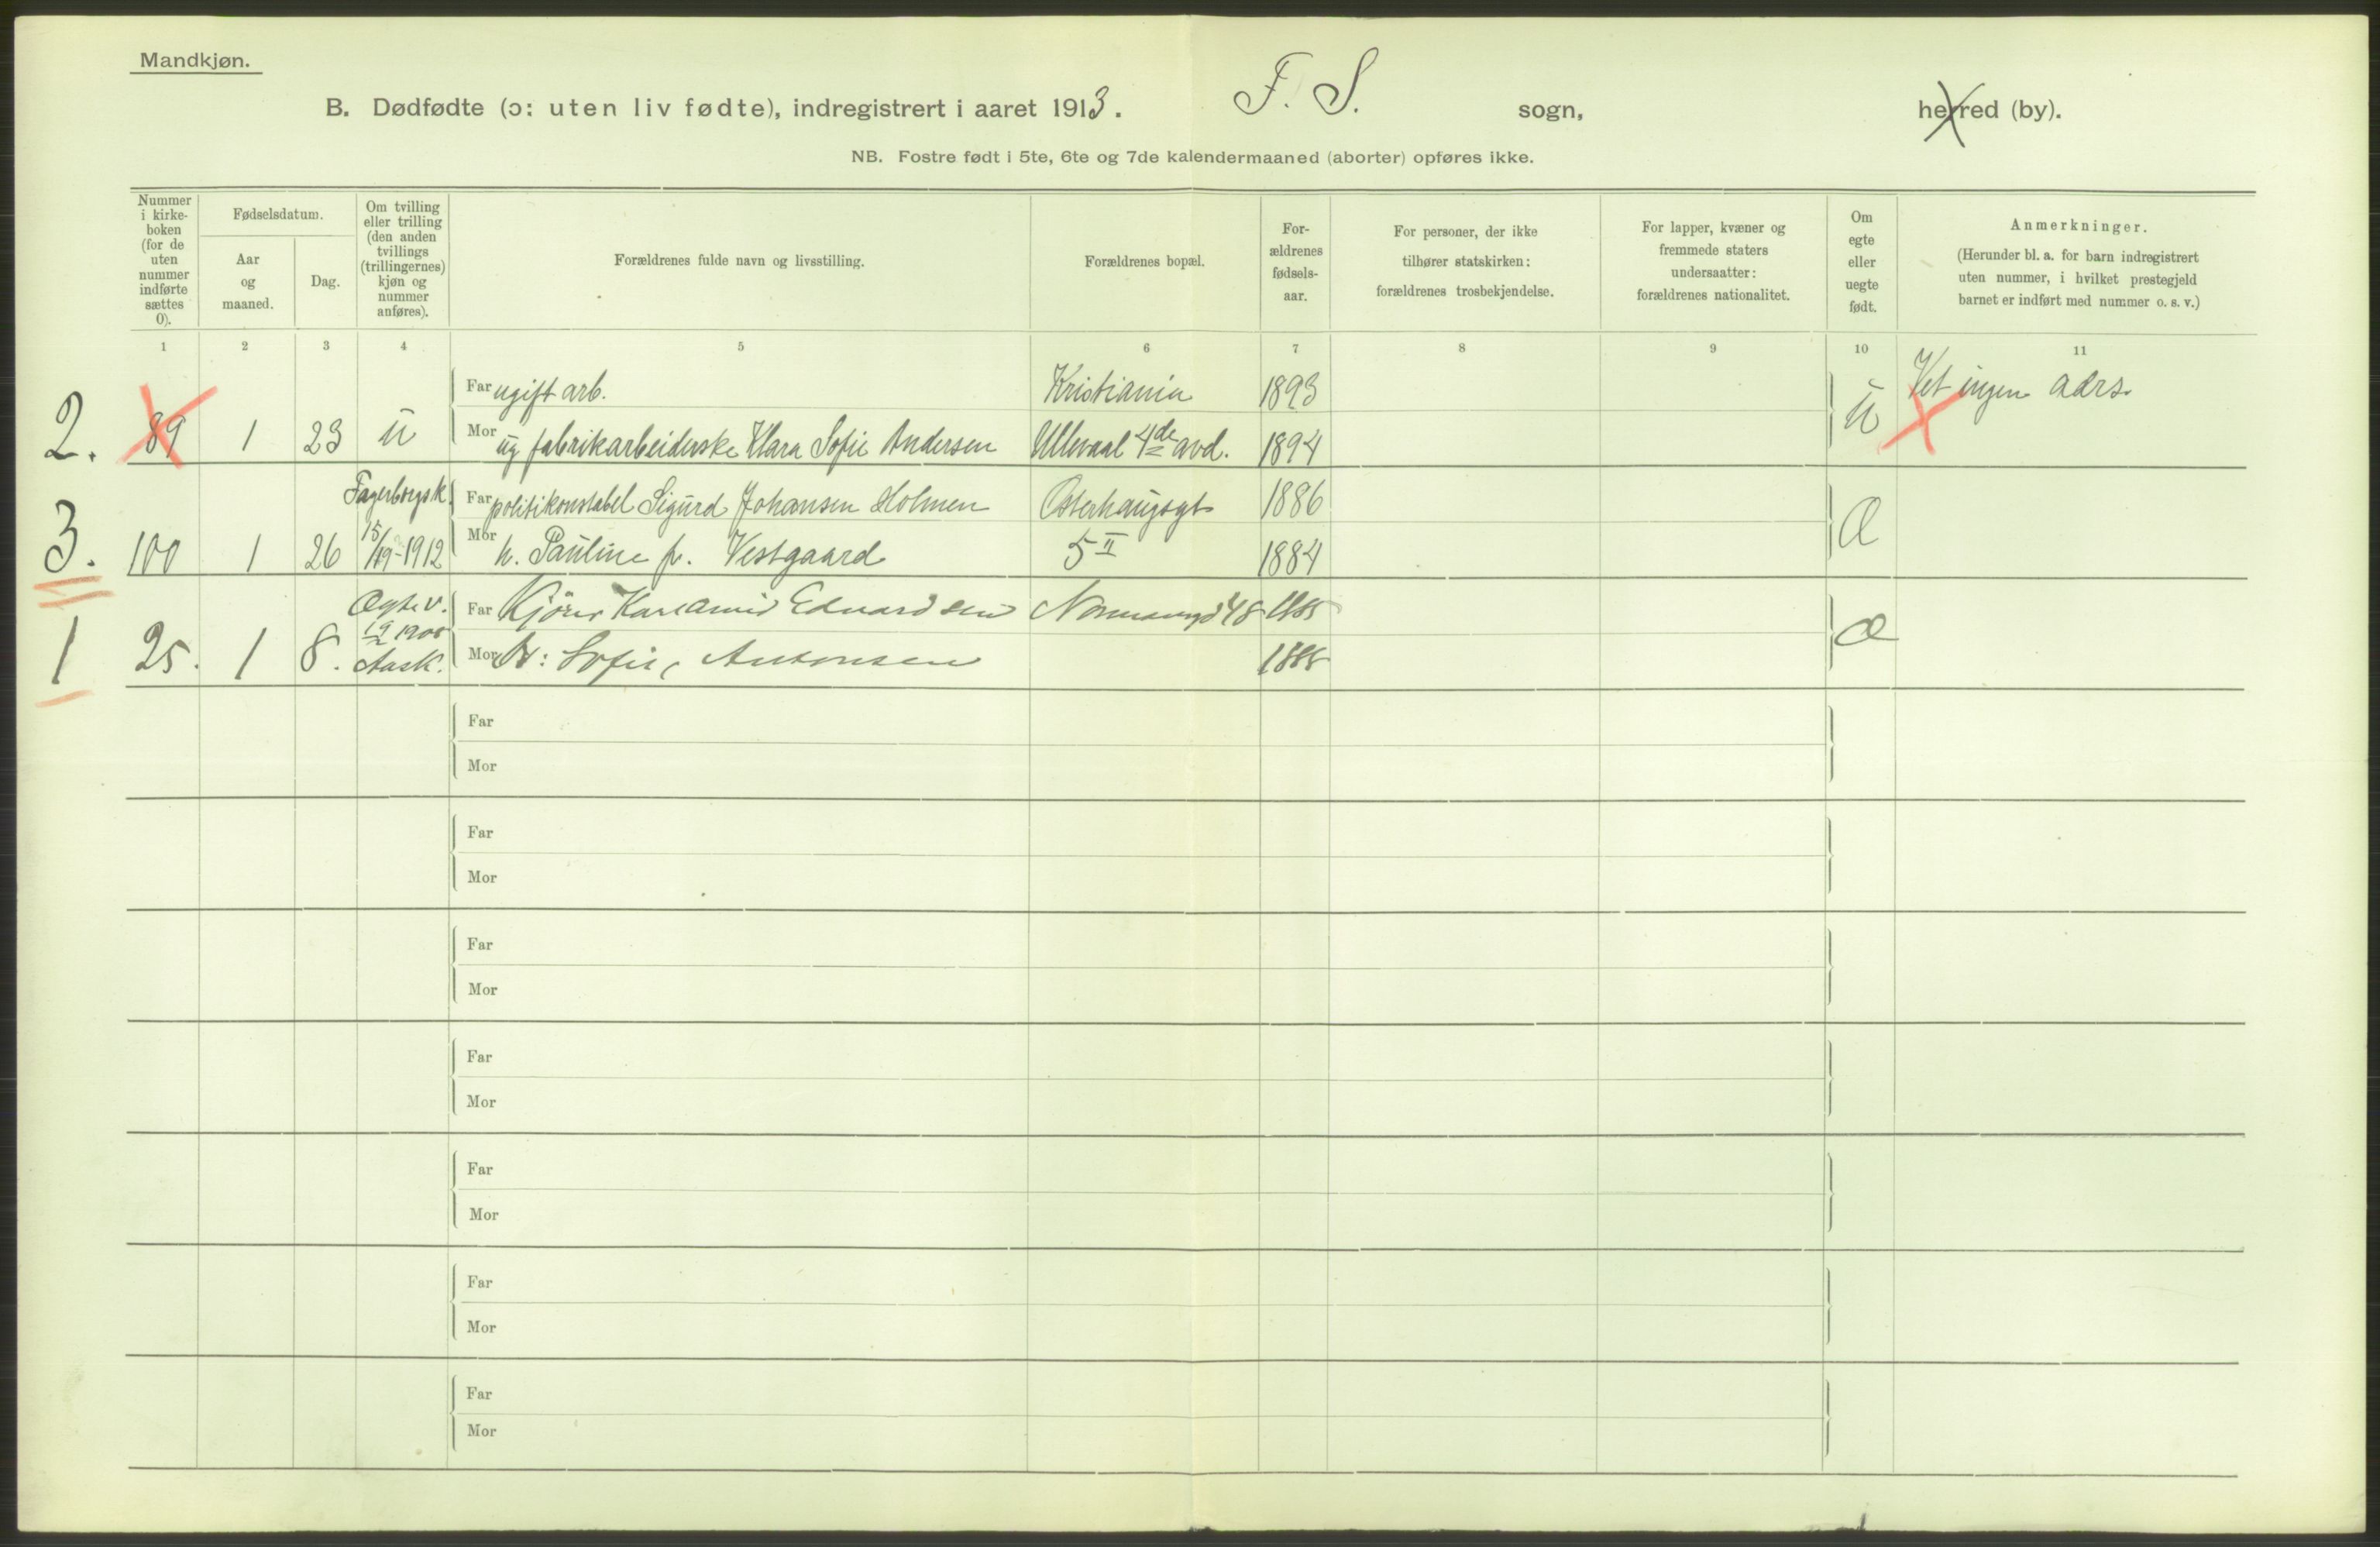 Mandkjøn.
B. Dødfødte (ɔ: uten liv fødte), indregistrert i aaret 1913. F. S. sogn, herred (by).
NB. Fostre født i 5te, 6te og 7de kalendermaaned (aborter) opføres ikke.
Nummer
i kirke-
boken
(for de
uten
nummer
indførte
sættes
0).
Fødselsdatum.
Aar
og
maaned.
Dag.
Om tvilling
eller trilling
(den anden
tvillings
(trillingernes)
kjøn og
nummer
anføres).
Forældrenes fulde navn og livsstilling.
Forældrenes bopæl.
For-
ældrenes
fødsels-
aar.
For personer, der ikke
tilhører statskirken:
forældrenes trosbekjendelse.
For lapper, kvæner og
fremmede staters
undersaatter:
forældrenes nationalitet.
Om
egte
eller
uegte
født.
Anmerkninger.
(Herunder bl. a. for barn indregistrert
uten nummer, i hvilket prestegjeld
barnet er indført med nummer o. s. v.)
1 2 3 4 5 6 7 8 9 10 11
Far ugift arb. Kristiania 1893 Vet ingen adrs.
2. 89 1 23 U Mor ug fabrikarbeiderske Klara Sofie Andersen Ullevaal 4de avd. 1894 U
Fagerborgsk. Far politikonstabel Sigurd Johansen Holmen Osterhausgt 1886
3. 100 1 26 15/19-1912 Mor h. Pauline f. Vestgaard 5 II 1884 Æ
Egtev. Far Kjører Karl Arvid Edvardsen 48 1885
1 25. 1 8. 1908 Aask. Mor H: Sofie, Antonsen 1888 Æ
Far
Mor
Far
Mor
Far
Mor
Far
Mor
Far
Mor
Far
Mor
Far
Mor